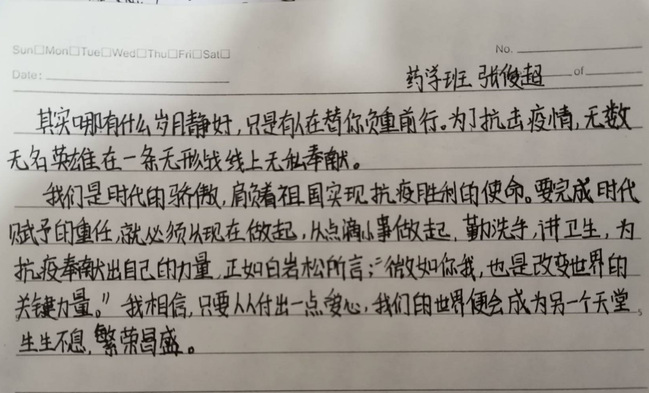 Sun□Mon□Tue□Wed□Thu□Fri□Sat□
No.
Date:
药学班 张俊超 of
其实哪有什么岁月静好,只是有人在替你负重前行。为了抗击疫情,无数
无名英雄在一条无形战线上无私奉献。
我们是时代的骄傲,肩负着祖国实现抗疫胜利的使命。要完成时代
赋予的重任,就必须从现在做起,从点滴小事做起,勤洗手,讲卫生,为
抗疫奉献出自己的力量,正如白岩松所言:“微如你我,也是改变世界的
关键力量。”我相信,只要人人付出一点爱心,我们的世界便会成为另一个天堂,
生生不息,繁荣昌盛。